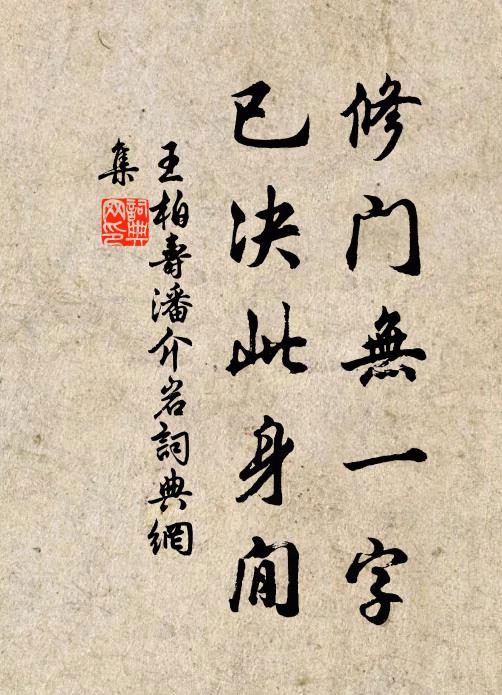 修門無一字
已决此身閒
王柏壽潘介岩詞典網
集
詞典
网印